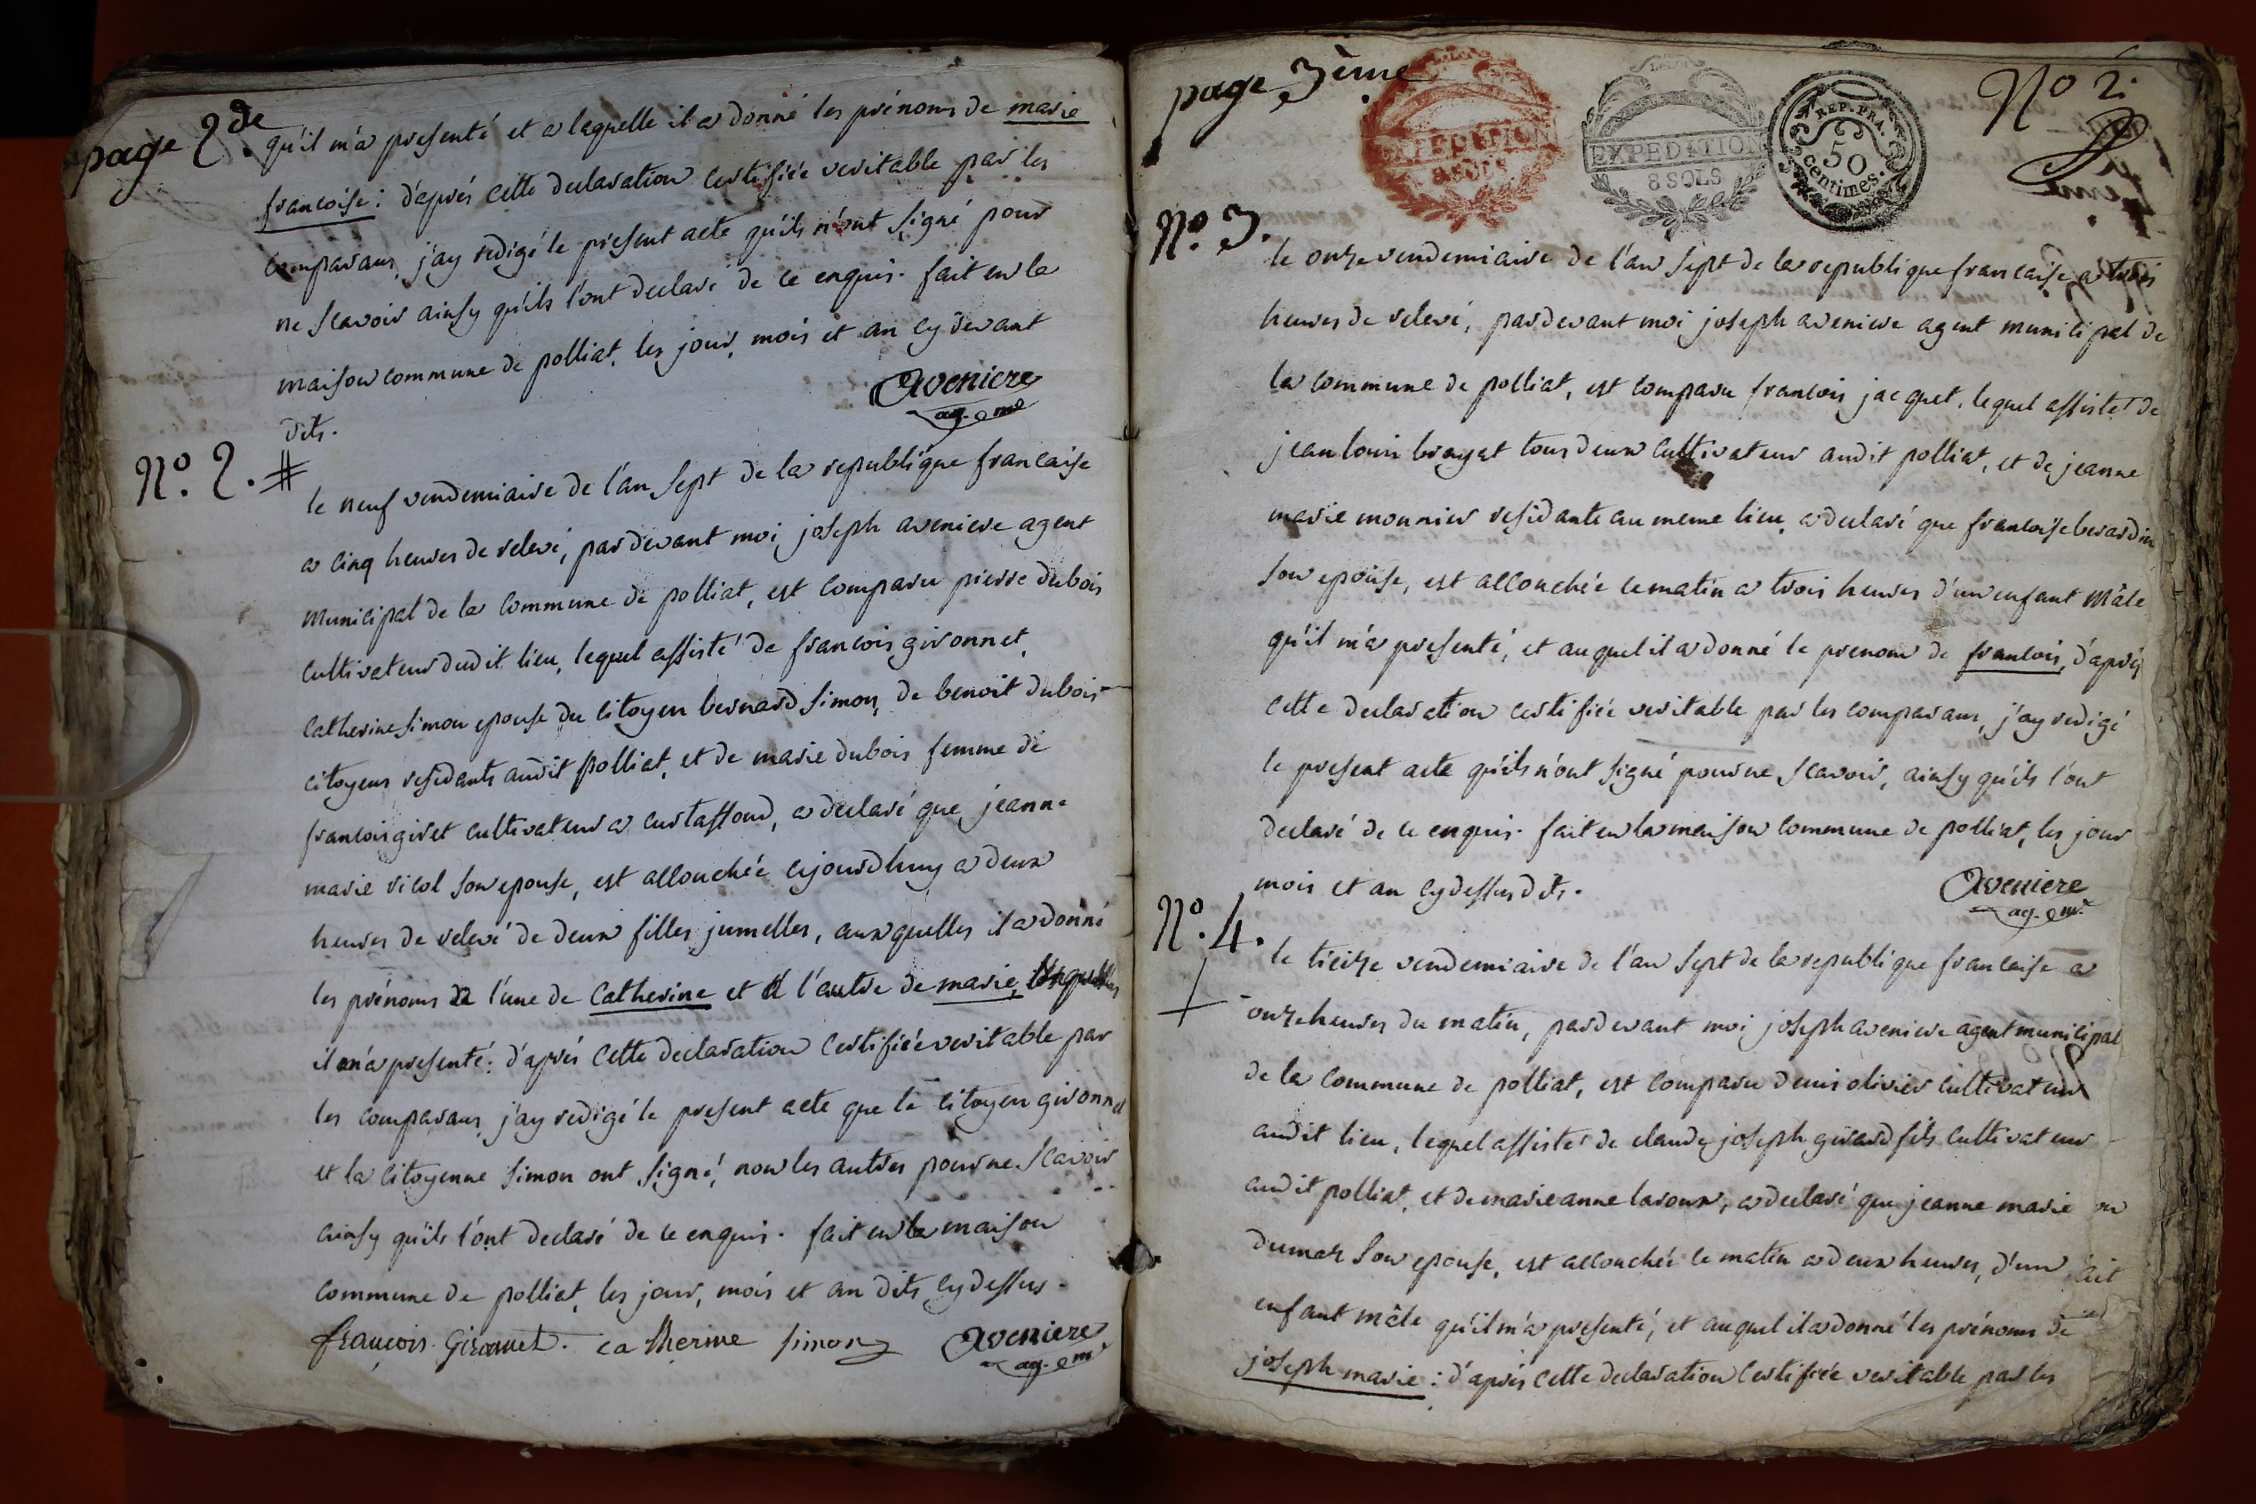 page 2de
qu'il m'a presenté et a laquelle il a donné les prénoms de marie
francoise : d'aprés cette declaration certifiée veritable par les
comparans, j'ay redigé le present acte qu'ils n'ont signé pour
ne scavoir ainsy qu'ils l'ont declaré de ce enquis. fait en la
maison commune de polliat, les jour, mois et an cy devant
dits.
Aveniere
ag. m.
No. 2.
le neuf vendemiaire de l'an sept de la republique francaise
a cinq heures de relevé, pardevant moi joseph aveniere agent
municipal de la commune de polliat, est comparu pierre dubois
cultivateur dudit lieu, lequel assisté de francois gironnet,
catherine simon epouse du citoyen bernard simon, de benoit dubois
citoyens residants audit polliat, et de marie dubois femme de
francois giret cultivateur a curtaffond, a declaré que jeanne
marie ricol son epouse, est accouchée cejourdhuy a deux
heures de relevé de deux filles jumelles, auxquelles il a donné
les prénoms a l'une de catherine et a l'autre de marie, lesquelles
il m'a presenté : d'aprés cette declaration certifiée veritable par
les comparans, j'ay redigé le present acte que le citoyen gironnet
et la citoyenne simon ont signé, non les autres pour ne scavoir
ainsy qu'ils l'ont declaré de ce enquis. fait en la maison
commune de polliat, les jour, mois et an dits cy dessus.
françois Gironnet. catherine simon Aveniere
ag. m.
page 3ème
EXPEDITION
8 SOLS
EXPEDITION
8 SOLS
REP. FRA.
50
centimes.
No 2.
No. 3.
le onze vendemiaire de l'an sept de la republique francaise a trois
heures de relevé, pardevant moi joseph aveniere agent municipal de
la commune de polliat, est comparu francois jacquet, lequel assisté de
jean louis brayat tous deux cultivateur audit polliat, et de jeanne
marie monnier residante au meme lieu, a declaré que francoise berardin
son epouse, est accouchée ce matin a trois heures d'un enfant mâle
qu'il m'a presenté, et auquel il a donné le prenom de francois, d'aprés
cette declaration certifiée veritable par les comparans, j'ay redigé
le present acte qu'ils n'ont signé pour ne scavoir, ainsy qu'ils l'ont
declaré de ce enquis. fait en la maison commune de polliat, les jour
mois et an cy dessus dits.
Aveniere
ag. m.
No. 4.
le treize vendemiaire de l'an sept de la republique francaise a
onze heures du matin, pardevant moi joseph aveniere agent municipal
de la commune de polliat, est comparu denis olivier cultivateur
audit lieu, lequel assisté de claude joseph girard fils cultivateur
audit polliat, et de marie anne laroux, a declaré que jeanne marie
dumas son epouse, est accouchée ce matin a deux heures, d'un
enfant mâle qu'il m'a presenté, et auquel il a donné les prénoms de
joseph marie : d'aprés cette declaration certifiée veritable par les